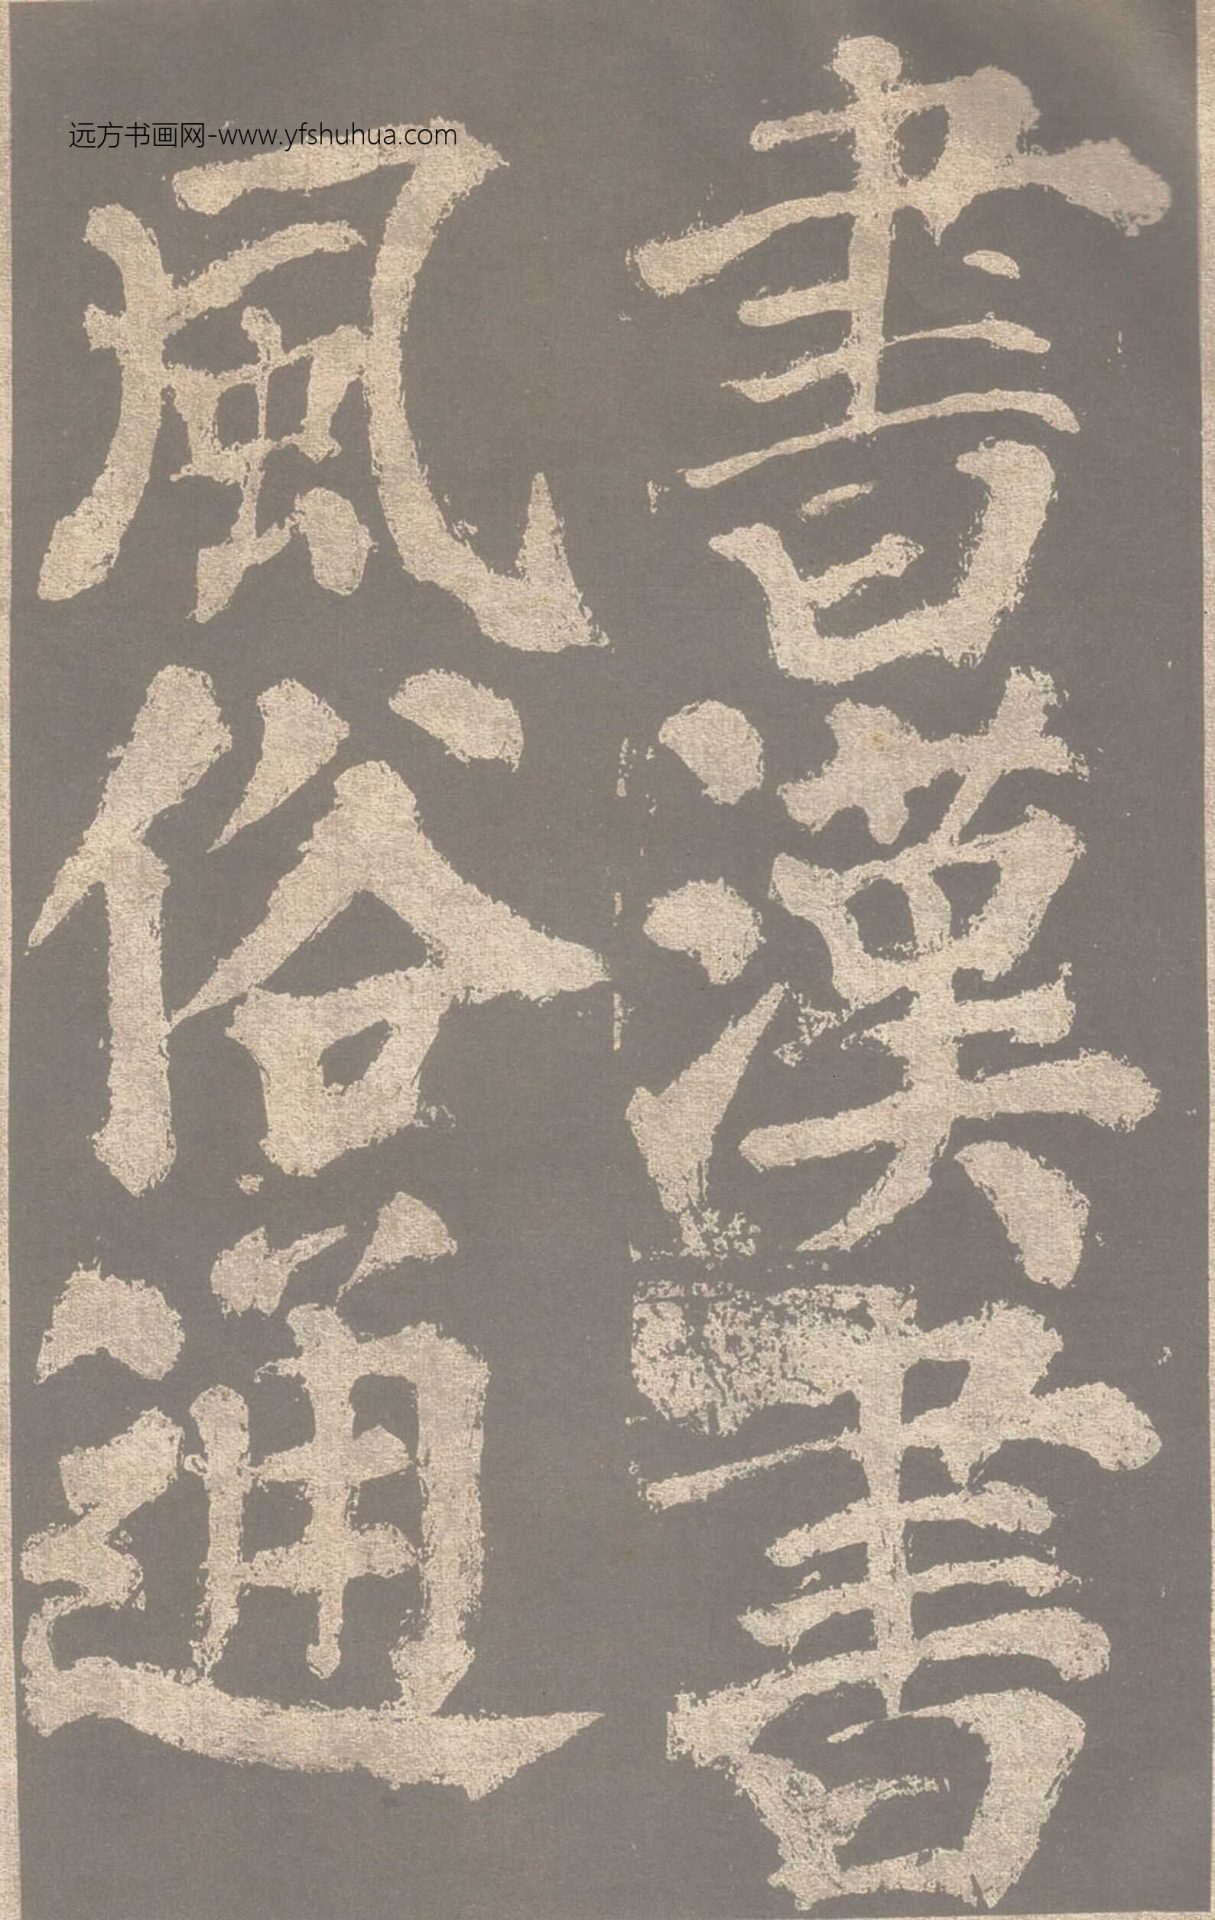 远方书画网-www.yfshuhua.com
書漢書
風俗通